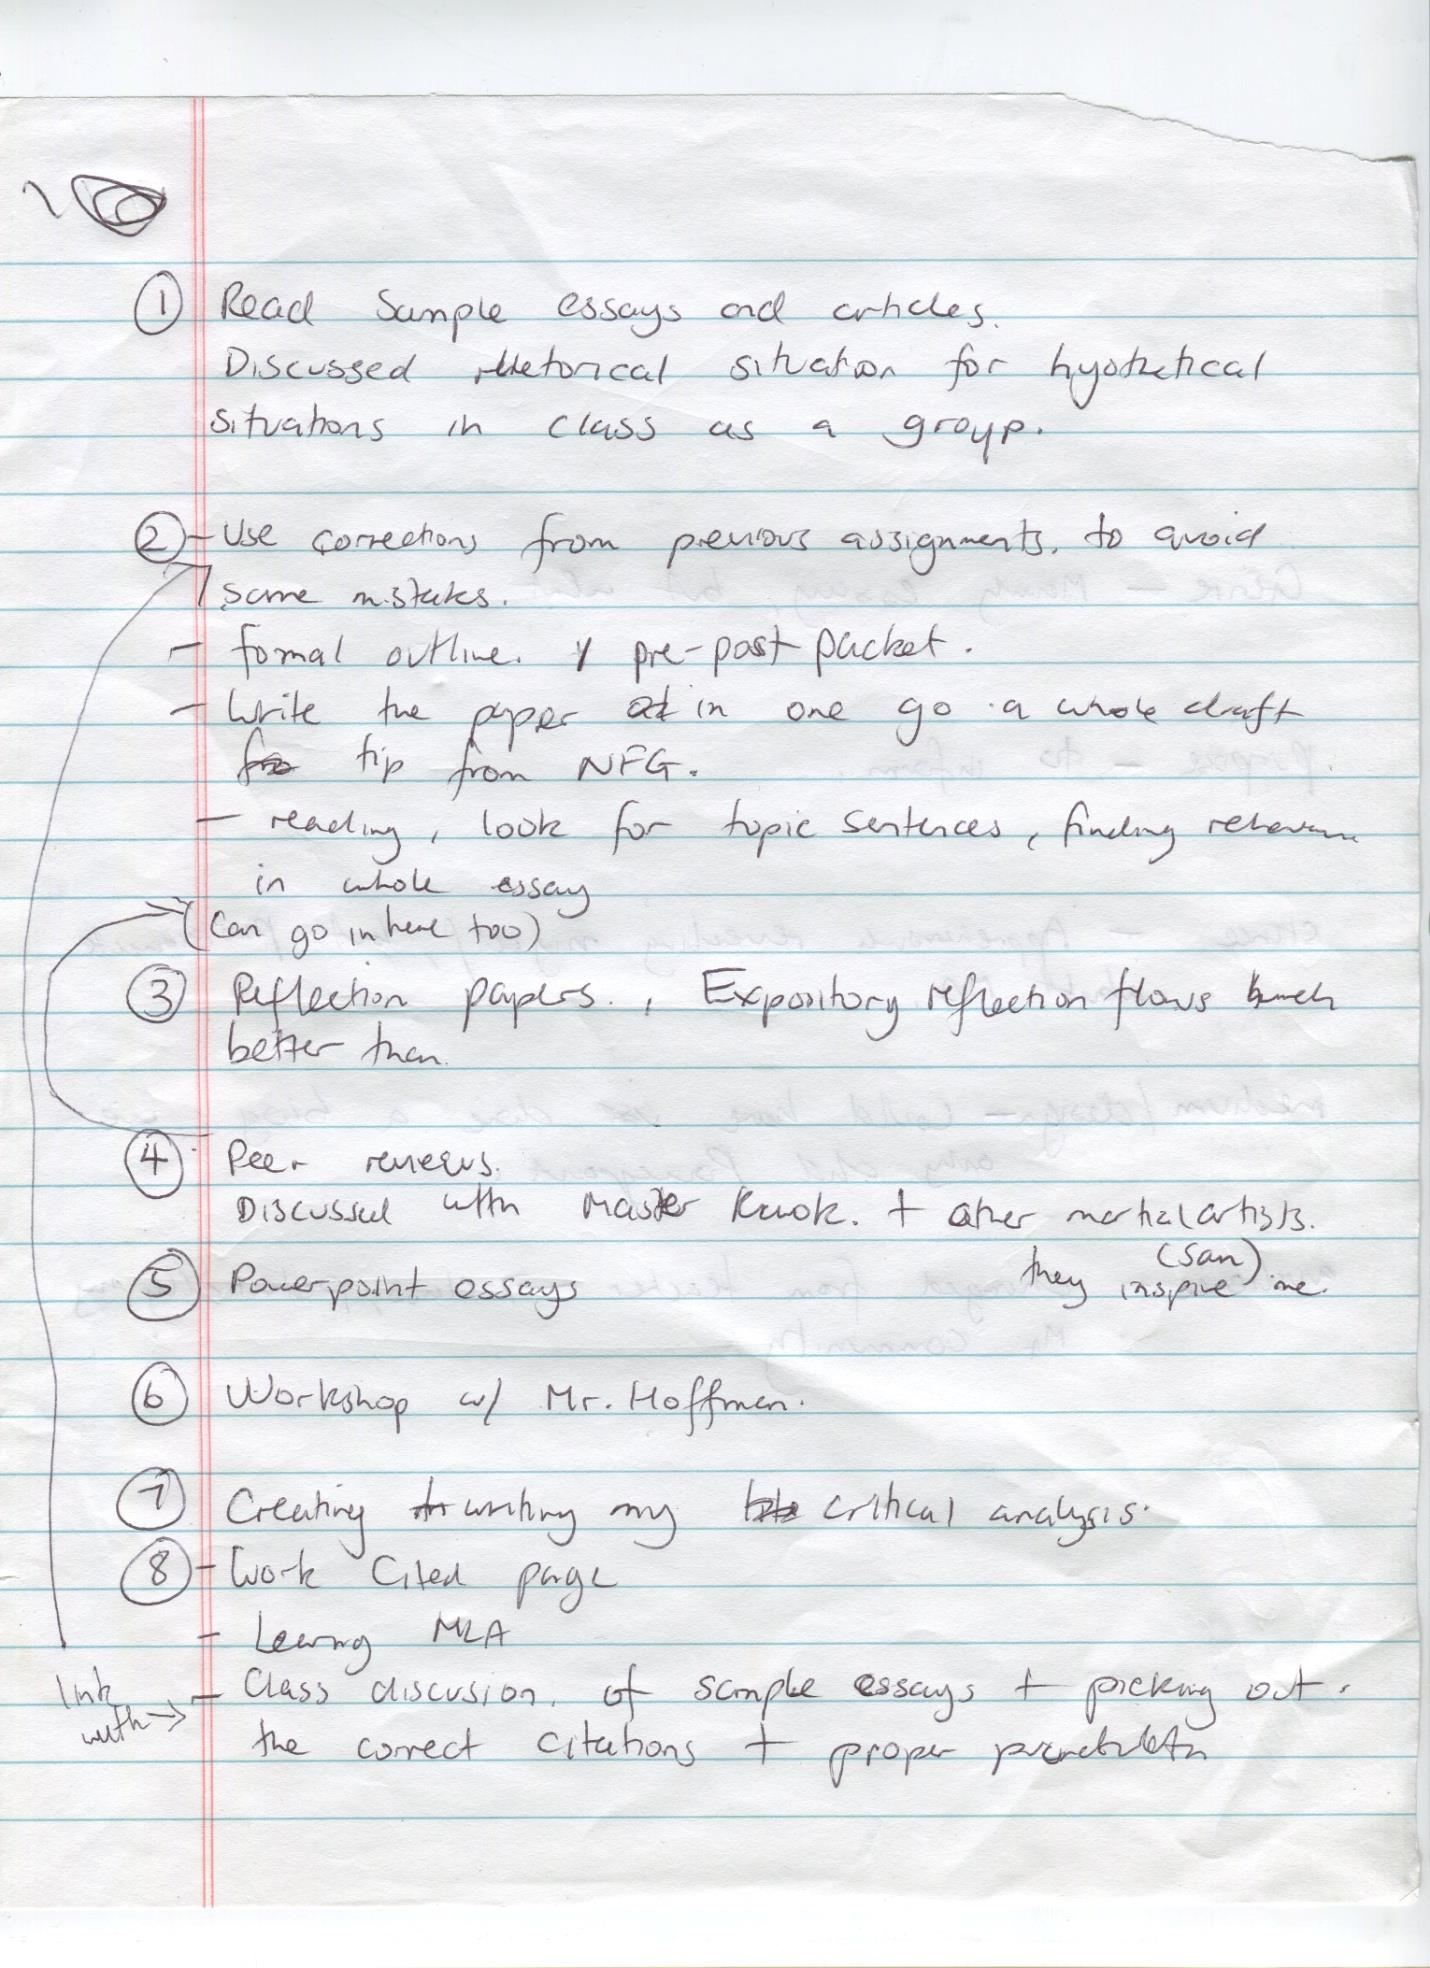 ① Read Sample essays and articles.
Discussed rhetorical situation for hyothetical
situations in class as a group.
② - Use corrections from previous assignments. to avoid
same mistakes.
- formal outline. y pre-post packet.
- Write the paper in one go a whole draft
tip from NFG.
- reading, look for topic sentences, finding
in whole essay
(Can go in here too)
③ Reflection papers. , Expository reflection flows much
better than.
④ Peer reviews.
Discussed with Master Kwok. + other martial artists.
(San)
they inspire me.
⑤ Powerpoint essays
⑥ Workshop w/ Mr. Hoffman.
⑦ Creating writing my critical analysis.
⑧ - Work Cited page
- Learning MLA
link with → - Class discusion. of sample essays + picking out.
the correct citations + proper